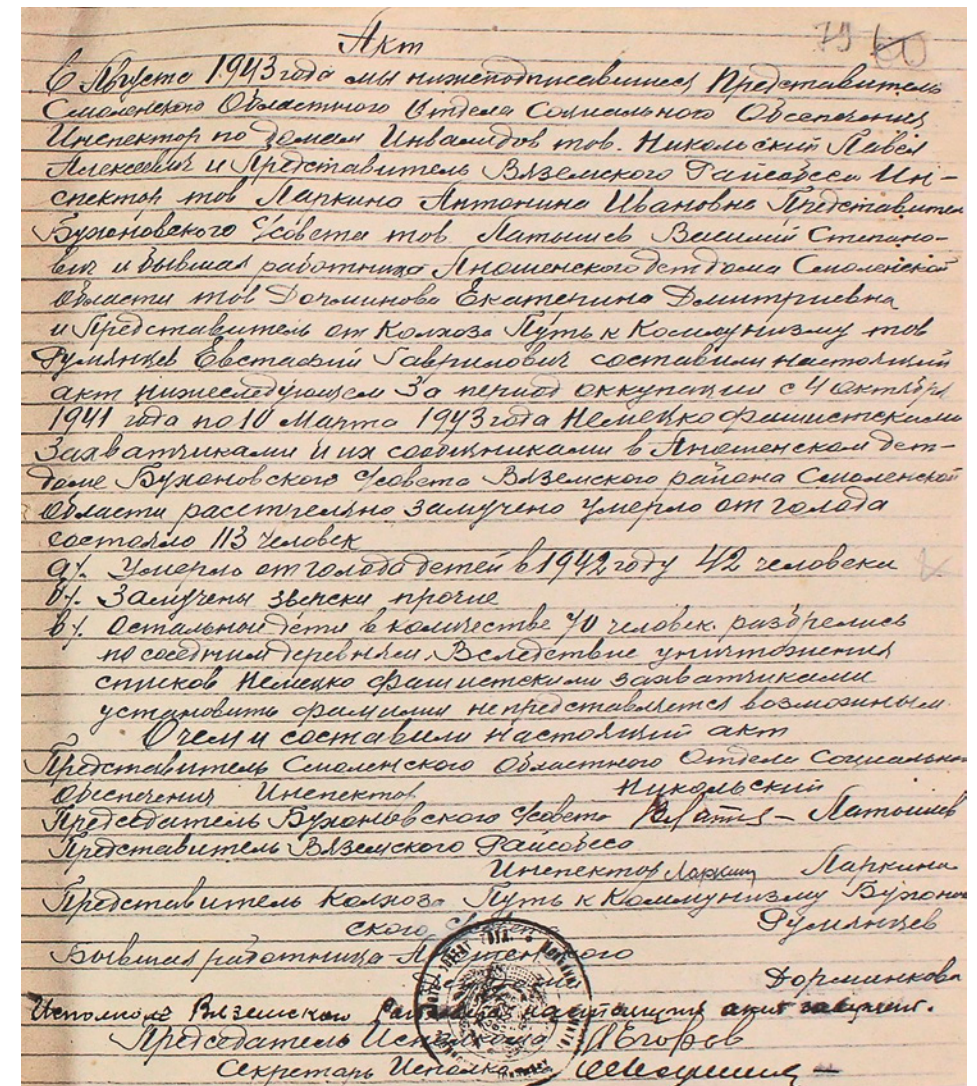 Акт
79 60
6 Августа 1943 года мы нижеподписавшиеся Представитель
Смоленского Областного Отдела Социального Обеспечения
Инспектор по Домам Инвалидов тов. Никольский Павел
Алексеевич и Представитель Вяземского Райсобеса Ин-
спектор тов Ларкина Антонина Ивановна Представител
Бухоновского с/совета тов Латышев Василий Степано-
вич и бывшая работница Аношенского дет дома Смоленской
Области тов Екатерина Дмитриевна
и Представитель от Колхоза Путь к Коммунизму тов
Румянцев Евстафий Гаврилович составили настоящий
акт нижеследующем За период оккупации с 4 октября
1941 года по 10 Марта 1943 года Немецко фашистскими
Захватчиками и их сообщниками в Аношенском дет-
доме Бухоновского с/совета Вяземского района Смоленской
Области расстреляно замучено умерло от голода
состояло 113 человек
а/. Умерло от голода детей в 1942 году 42 человека
б/. Замучены зверски прочие
в/. Остальной дети в количестве 70 человек. разбрелись
по соседним деревням. Вследствие уничтожения
списков Немецко фашистскими захватчиками
установить фамилии не представляется возможным.
О чем и составили настоящий акт
Представитель Смоленского Областного Отдела Социально
обеспечения Инспектор Никольский
Председатель Бухоновского с/совета Латышев
Представитель Вяземского Райсобеса
Инспектор Ларкин Ларкина
Представитель Колхоза Путь к Коммунизму Бухонов
ского Румянцев
Бывшая работница
Дорминкова
Исполком Вяземского настоящий акт
Председатель Исполкома Егоров
Секретарь Исполкома